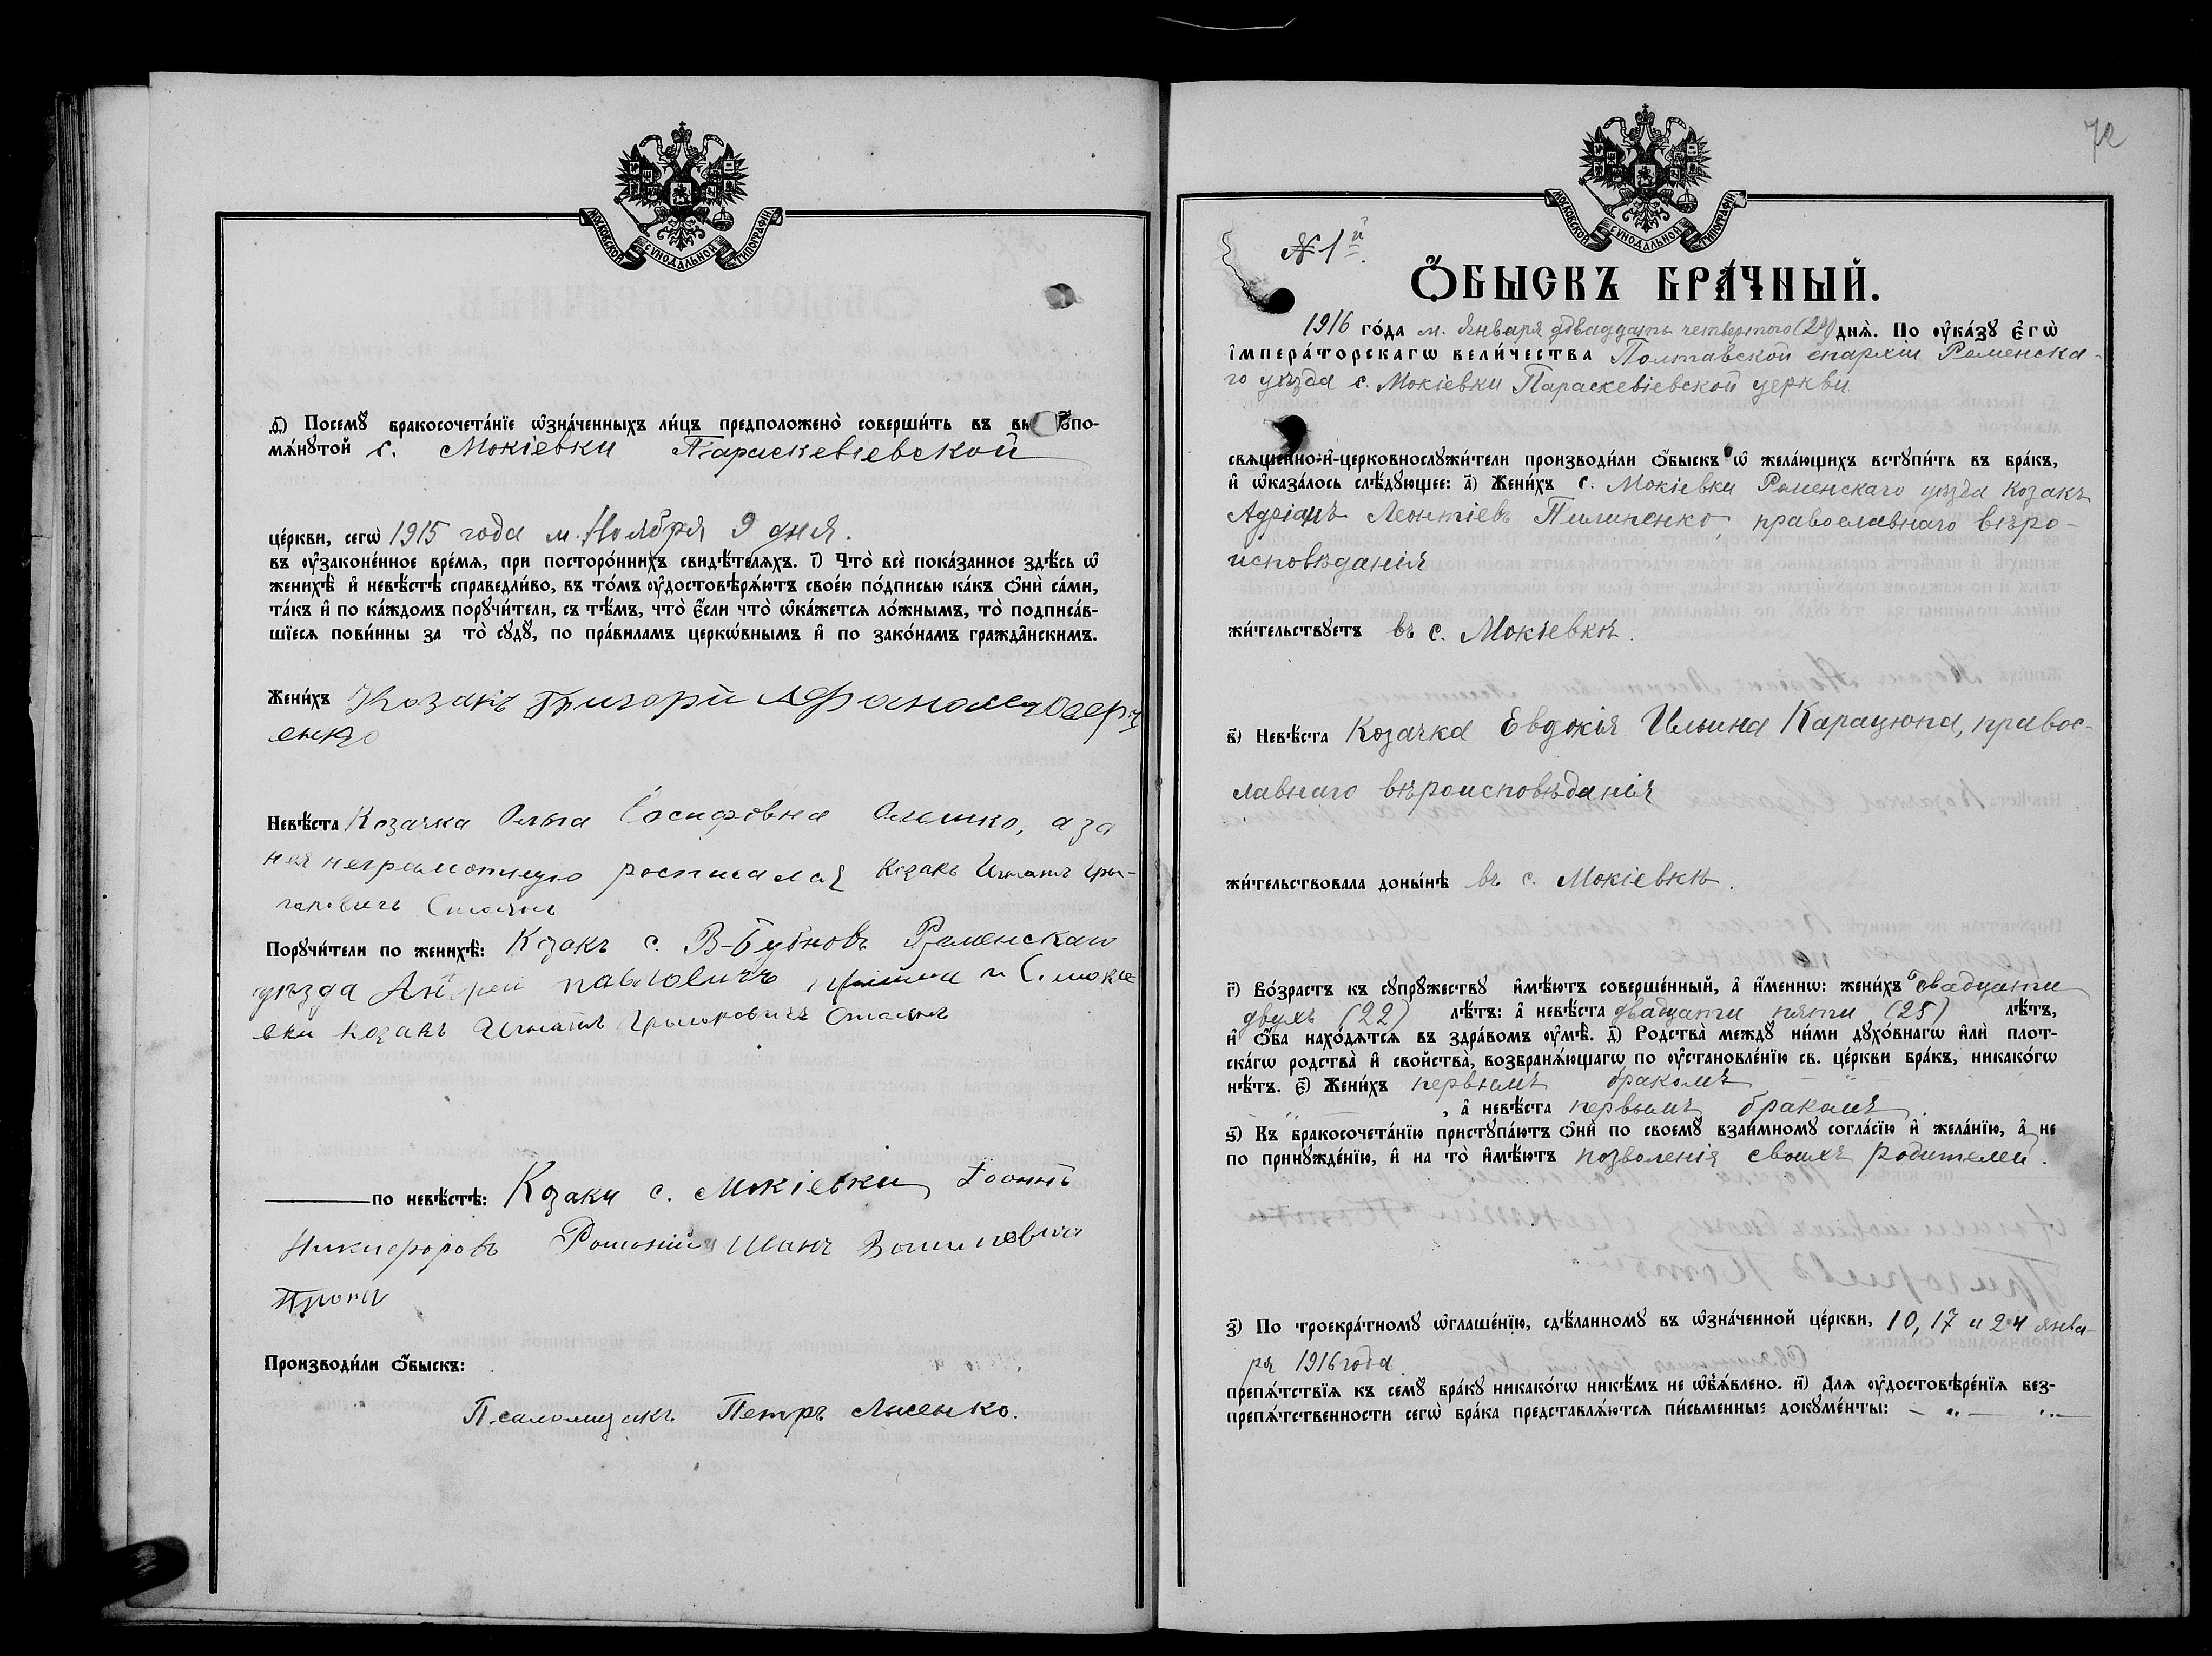 МОСКОВСКОЙ СѴНОДАЛЬНОЙ ТИПОГРАФІИ
ѳ҃) Посемꙋ̀ бракосочета́нїе ѡ҆зна́ченныхъ ли́цъ предположено̀ соверши́ть въ вы по-
мѧ́нꙋтой с. Мокіевки Параскевіевской
це́ркви, сегѡ̀ 1915 года м. Ноября 9 дня.
въ оу҆зако́ненное вре́мѧ, при посторо́ннихъ свидѣ́телѧхъ. і҃) Что̀ всѐ пока́занное здѣ́сь ѡ҆
женихѣ̀ и҆ невѣ́стѣ справедли́во, въ то́мъ оу҆достовѣрѧ́ютъ свое́ю по́дписью ка́къ ѻ҆нѝ са́ми,
та́къ и҆ по ка́ждомъ порꙋчи́тели, съ тѣ́мъ, что̀ є҆́сли что̀ ѡ҆ка́жетсѧ ло́жнымъ, то̀ подписа́в-
шїесѧ пови́нны за то̀ сꙋдꙋ̀, по пра́виламъ церкѡ́внымъ и҆ по зако́намъ гражда̑нскимъ.
Жени́хъ Козакъ Григори
енко
Невѣ́ста Козачка Ольга Іосифовна Олешко, а за
нея неграмотную росписался козакъ Игнатъ Гри-
горовичъ
Порꙋчи́тели по женихѣ̀: Козакъ с. В-Бубновъ Роменскаго
уѣзда Андрей Павловичъ и С. Мокіе
вки козакъ Игнатъ Грыгоровичъ
по невѣ́стѣ: Козаки с. Мокіевки Іоаннъ
Никифоровъ Иванъ
Производи́ли ѻ҆́быскъ:
Псаломщикъ Петръ Лысенко.
72
МОСКОВСКОЙ СѴНОДАЛЬНОЙ ТИПОГРАФІИ
№ 1й.
Ѻ҆́БЫСКЪ БРА́ЧНЫЙ.
1916 го́да м. Января двадцать четвертого (24) днѧ̀. По оу҆ка́зꙋ є҆гѡ̀
і҆мпера́торскагѡ вели́чества Полтавской епархіи Роменска-
го уѣзда с. Мокіевки Параскевіевской церкви
свѧще́нно-и҆-церковнослꙋжи́тели производи́ли ѻ҆́быскъ ѡ҆ жела́ющихъ встꙋпи́ть въ бра́къ,
и҆ ѡ҆каза́лось слѣ́дꙋющее: а҃) Жени́хъ с. Мокіевки Роменскаго уѣзда козакъ
Адріанъ Леонтіевъ Пилипенко, православнаго вѣро-
исповѣданія
жи́тельствꙋетъ въ с. Мокіевкѣ.
в҃) Невѣ́ста Козачка Евдокія Ильина Карацюпа, правос-
лавнаго вѣроисповѣданія
жи́тельствовала доны́нѣ въ с. Мокіевкѣ.
г҃) Во́зрастъ къ сꙋпрꙋ́жествꙋ и҆мѣ́ютъ соверше́нный, а҆ и҆́меннѡ: жени́хъ двадцати
двухъ (22) лѣ́тъ: а҆ невѣ́ста двадцати пяти (25) лѣ́тъ,
и҆ ѻ҆́ба нахо́дѧтсѧ въ здра́вомъ оу҆мѣ̀. д҃) Родства̀ междꙋ̀ ни́ми дꙋхо́внагѡ и҆лѝ плот-
ска́гѡ родства̀ и҆ свойства̀, возбранѧ́ющагѡ по оу҆становле́нїю св. це́ркви бра́къ, никако́гѡ
нѣ́тъ. є҃) Жени́хъ первымъ бракомъ
, а҆ невѣ́ста первымъ бракомъ
ѕ҃) Къ бракосочета́нїю пристꙋпа́ютъ ѻ҆нѝ по своемꙋ̀ взаи́мномꙋ согла́сїю и҆ жела́нїю, а҆ не
по принꙋжде́нїю, и҆ на то̀ и҆мѣ́ютъ позволенія своихъ родителей.
з҃) По троекра́тномꙋ ѡ҆глаше́нїю, сдѣ́ланномꙋ въ ѡ҆зна́ченной це́ркви, 10, 17 и 24 янва-
ря 1916 года
препѧ́тствїѧ къ семꙋ̀ бра́кꙋ никако́гѡ никѣ́мъ не ѡ҆б̾ѧ́влено. и҃) Длѧ оу҆достовѣре́нїѧ без-
препѧ́тственности сегѡ̀ бра́ка представлѧ́ютсѧ пи́сьменныє докꙋме́нты: — „ — „ —